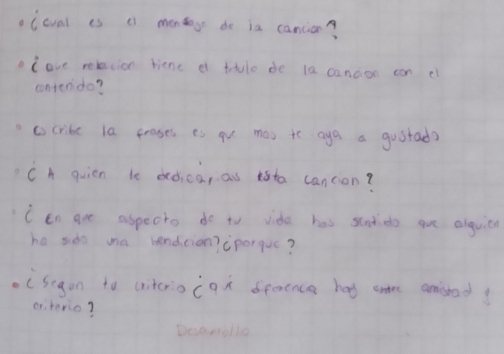 •¿cual es el mensage de la cancion?
•¿que relacion tiene el titulo de la cancion con el
contenido?
• escribe la frases es que mas te aya a gustado
¿A quien le dedicarias esta cancion?
¿En que aspecto de tu vida has sentido que alguien
ha sido una vendicion? ¿porque?
•¿Segun tu criterio ¿ diferencia hay entre amistad y
criterio?
Desarrollo